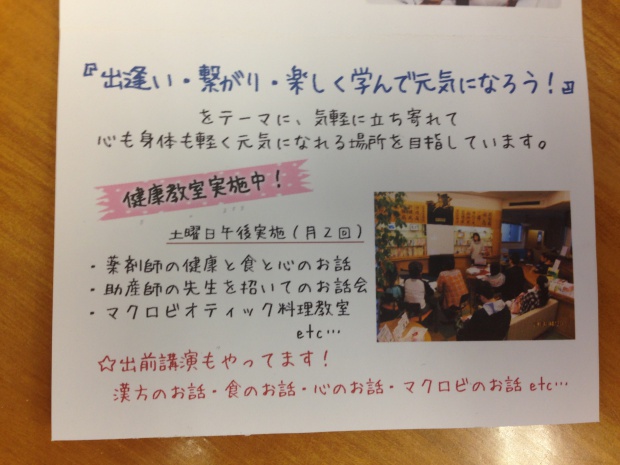 『出逢い・繋がり・楽しく学んで元気になろう！』
をテーマに、気軽に立ち寄れて
心も身体も軽く元気になれる場所を目指しています。
健康教室実施中！
土曜日午後実施（月２回）
・薬剤師の健康と食と心のお話
・助産師の先生を招いてのお話会
・マクロビオティック料理教室
etc…
☆出前講演もやってます！
漢方のお話・食のお話・心のお話・マクロビのお話 etc…